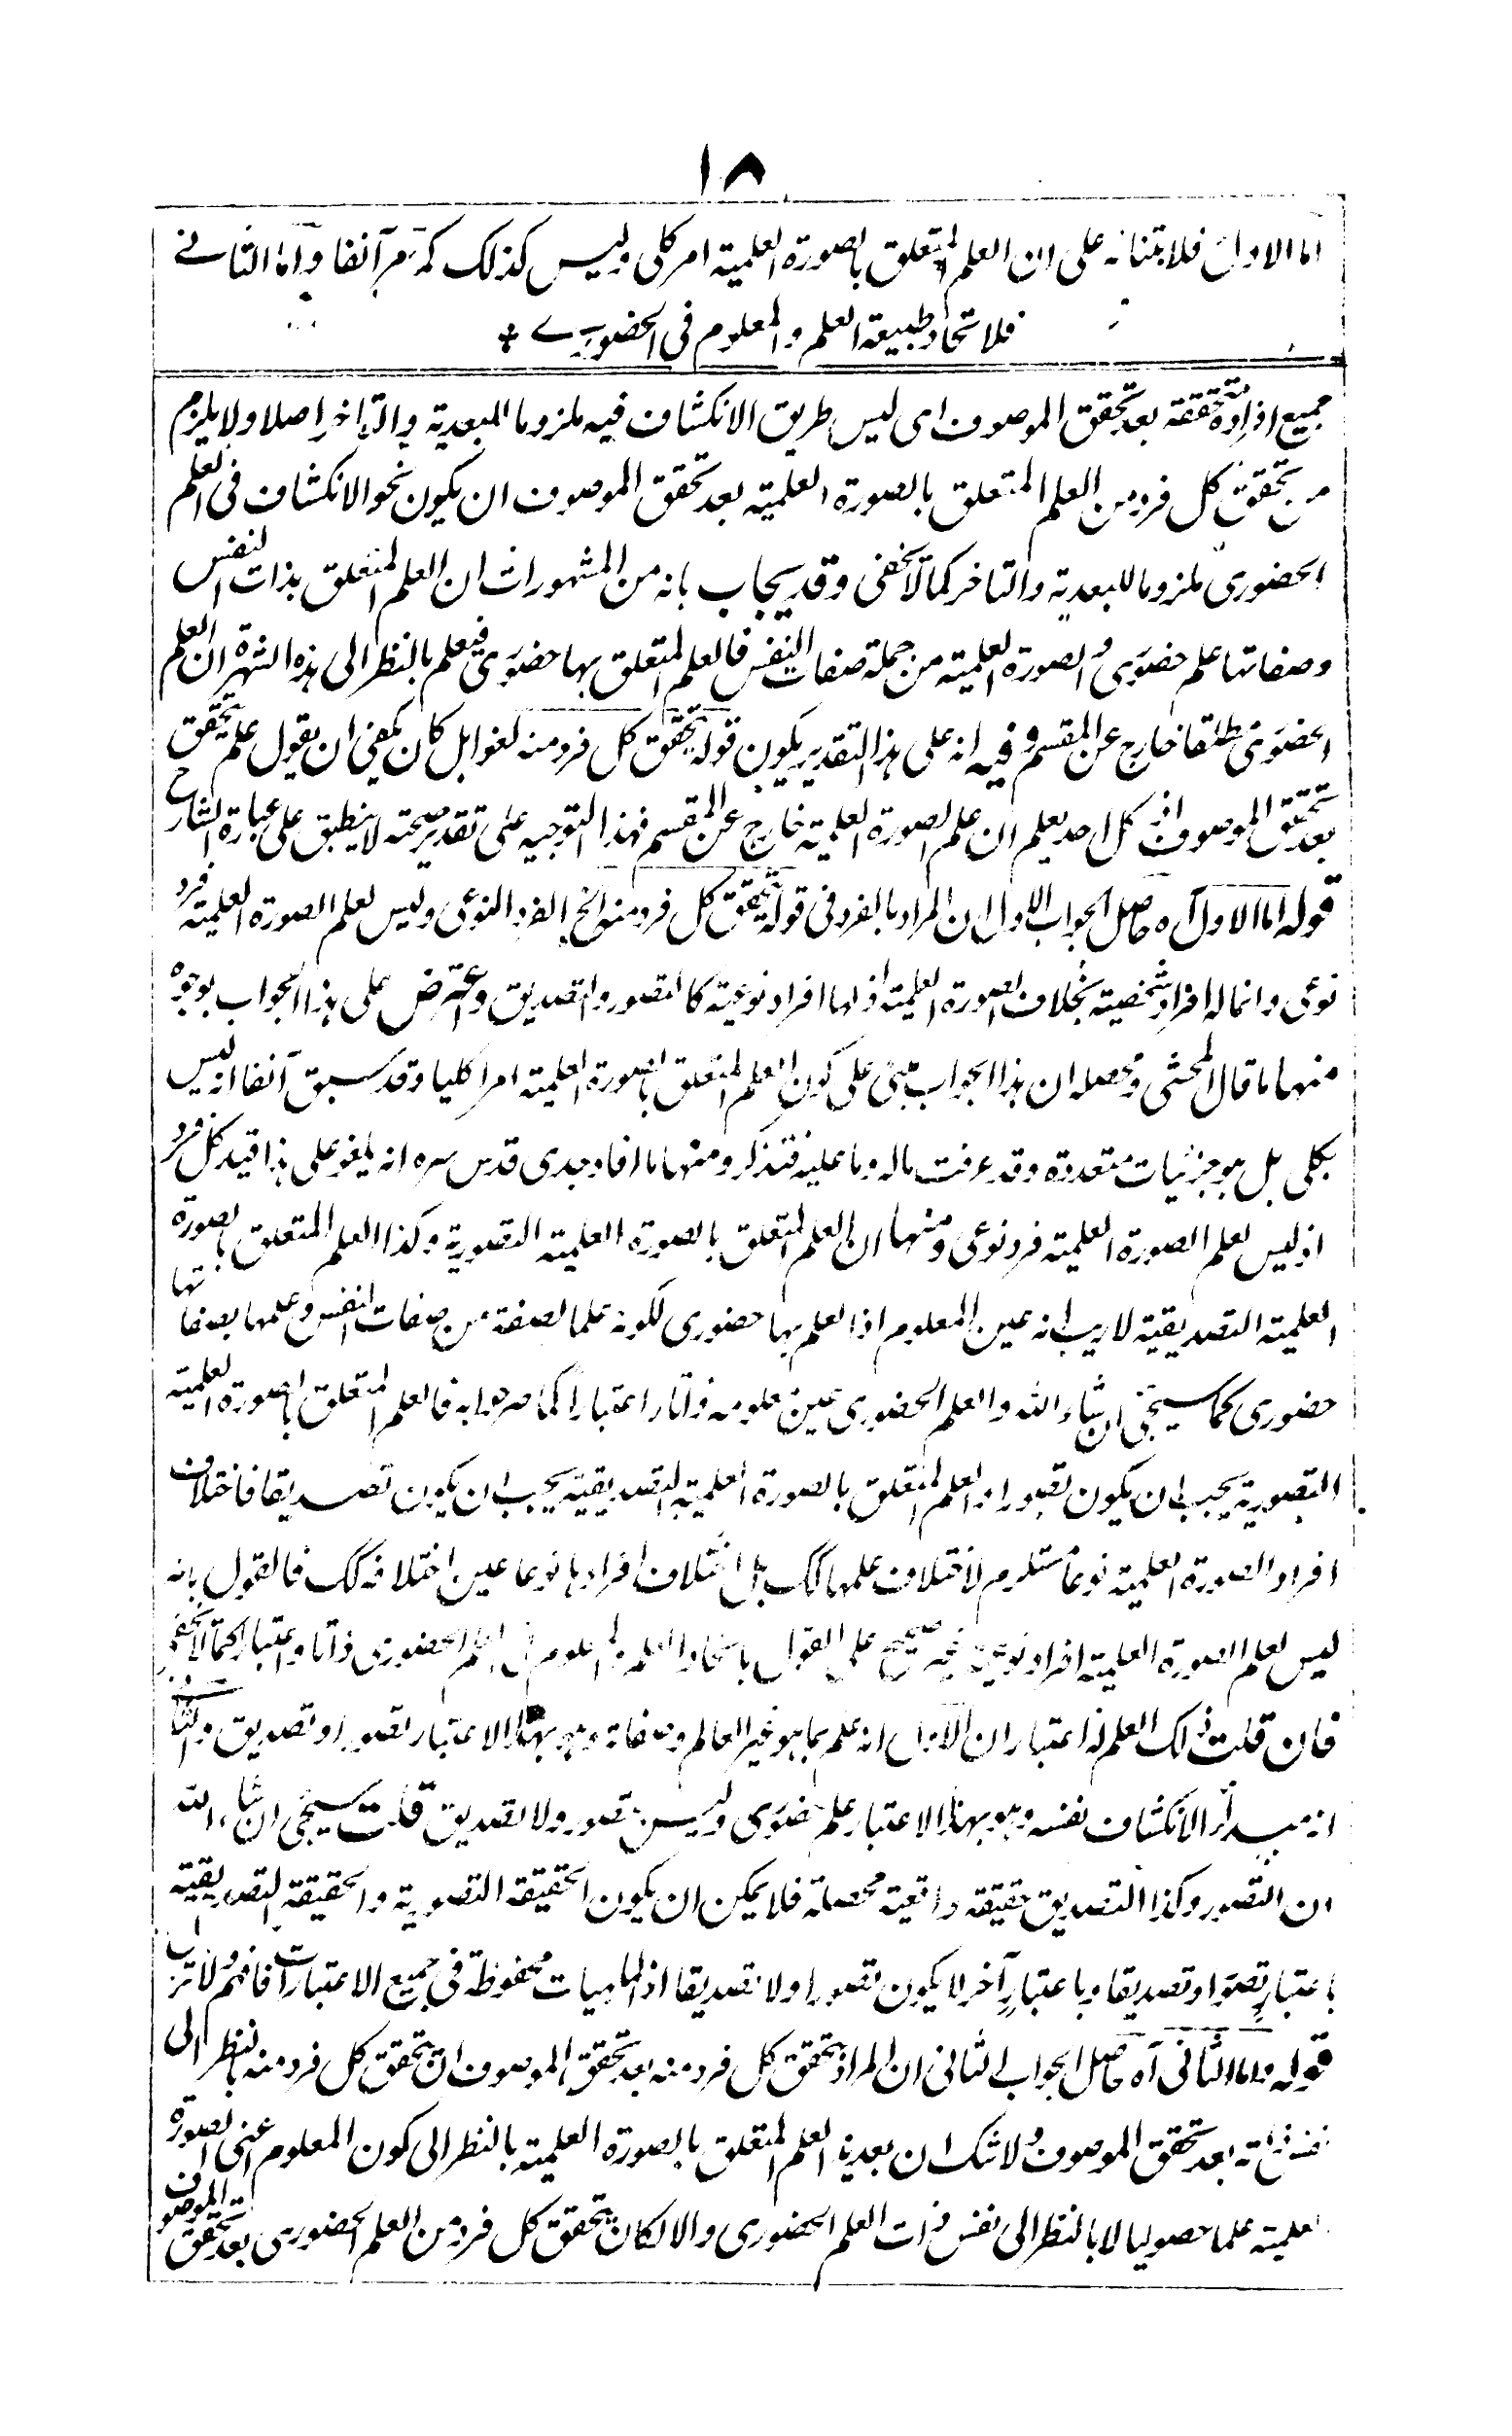 ١٨
اما الاول فلابتنائه على ان العلم المتعلق بالصورة العلمية امر كلى وليس كذلك كما مر آنفا واما الثانى
فلاتحاد طبيعة العلم والمعلوم فى الحضورى
جميع افراده متحققة بعد تحقق الموصوف اى ليس طريق الانكشاف فيه ملزوما للبعدية والتاخر اصلا ولا يلزم
من تحقق كل فرد من العلم المتعلق بالصورة العلمية بعد تحقق الموصوف ان يكون نحو الانكشاف فى العلم
الحضورى ملزوما للبعدية والتاخر كما لا يخفى وقد يجاب بانه من المشهورات ان العلم المتعلق بذات النفس
وصفاتها علم حضورى والصورة العلمية من جملة صفات النفس فالعلم المتعلق بها حضورى فيعلم بالنظر الى هذه الشهرة ان العلم
الحضورى مطلقا خارج عن المقسم وفيه انه على هذا التقدير يكون قوله يتحقق كل فرد منه لغوا بل كان يكفى ان يقول علم يتحقق
بعد تحقق الموصوف اذ كل احد يعلم ان علم الصورة العلمية خارج عن المقسم فهذا التوجيه على تقدير صحته لا ينطبق على عبارة الشارح
قوله اما الاول آه حاصل الجواب الاول ان المراد بالفرد فى قوله يتحقق كل فرد منه الخ الفرد النوعى وليس لعلم الصورة العلمية فرد
نوعى وانما له افراد شخصية بخلاف الصورة العلمية اذ لها افراد نوعية كالتصور والتصديق واعترض على هذا الجواب بوجوه
منها ما قال المحشى ومحصله ان هذا الجواب مبنى على كون العلم المتعلق بالصورة العلمية امرا كليا وقد سبق آنفا انه ليس
بكلى بل هو جزئيات متعددة وقد عرفت ماله وما عليه فتذكر ومنها ما افاد جدى قدس سره انه يلغو على هذا قيد كل فرد
اذ ليس لعلم الصورة العلمية فرد نوعى ومنها ان العلم المتعلق بالصورة العلمية التصورية وكذا العلم المتعلق بالصورة
العلمية التصديقية لا ريب انه عين المعلوم اذا لعلم بها حضورى لكونه علما لصفة من صفات النفس وعلمها بصفاتها
حضورى كما سيجئ ان شاء الله والعلم الحضورى عين معلومه ذاتا واعتبارا كما صرحوا به فالعلم المتعلق بالصورة العلمية
التصورية يجب ان يكون تصورا والعلم المتعلق بالصورة العلمية التصديقية يجب ان يكون تصديقا فاختلاف
افراد الصورة العلمية نوعا مستلزم لاختلاف علمها كك بل اختلاف افرادها نوعا عين اختلافه كك فالقول بانه
ليس لعلم الصورة العلمية افراد نوعية غير صحيح على القول باتحاد العلم والمعلوم فى العلم الحضورى ذاتا واعتبارا كما لا يخفى
فان قلت ذلك العلم له اعتباران الاول انه علم بما هو غير العالم وصفاته وهو بهذا الاعتبار تصور او تصديق والثانى
انه مبدأ الانكشاف نفسه وهو بهذا الاعتبار علم حضورى وليس بتصور ولا تصديق قلت سيجئ ان شاء الله
ان التصور وكذا التصديق حقيقة واقعية محصلة فلا يمكن ان يكون الحقيقة التصورية والحقيقة التصديقية
باعتبار تصورا وتصديقا وباعتبار آخر لا يكون تصورا ولا تصديقا اذ الماهيات محفوظة فى جميع الاعتبارات فافهم ولا تزل
قوله واما الثانى آه حاصل الجواب الثانى ان المراد بتحقق كل فرد منه بعد تحقق الموصوف ان يتحقق كل فرد منه بالنظر الى
نفس ذاته بعد تحقق الموصوف ولا شك ان بعدية العلم المتعلق بالصورة العلمية بالنظر الى كون المعلوم اعنى الصورة
العلمية علما حصوليا لا بالنظر الى نفس ذات العلم الحضورى والا لكان يتحقق كل فرد من العلم الحضورى بعد تحقق الموصوف